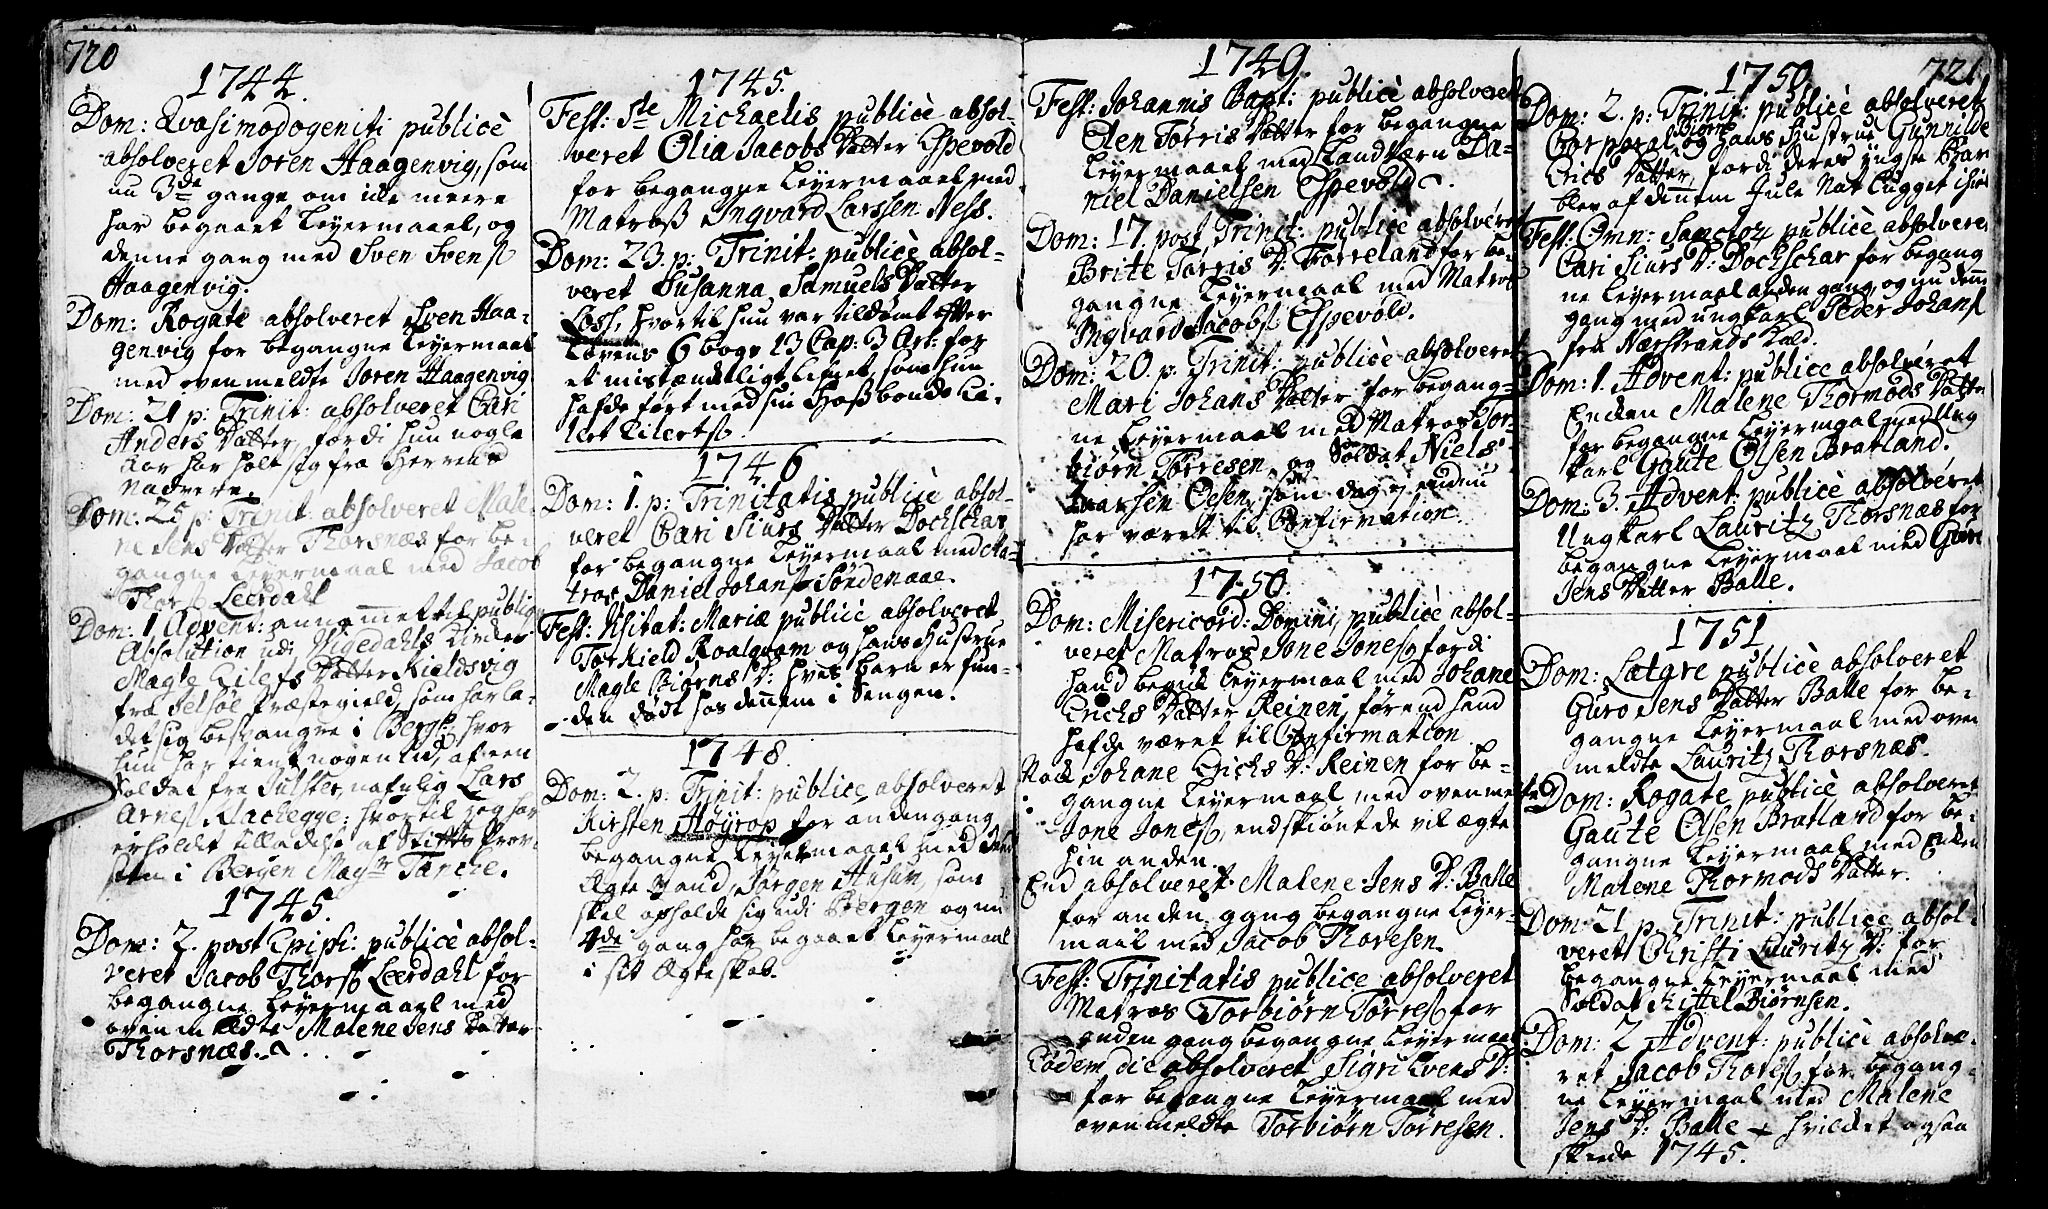 720
1744.
Dom: Qvasimodogeniti publicè
absolveret Joren Haagenvig, som
nu 3de gange om icke meere
har begaaet Leyermaael, og
denne gang med Sven Svens.
Haagenvig.
Dom: Rogate absolveret Sven Haa-
genvig for begangne Leyermaael
med ovenmeldte Joren Haagenvig
Dom: 21 p: Trinit: absolveret Cari
Anders Datter, fordi hun nogle
Aar har holt sig fra Herrens
Nadvere.
Dom: 25 p: Trinit absolveret Male-
ne Jens Datter Thorsnæs for be-
gangne Leyermaael med Jacob
Thors. Leerdahl
Dom: 1 Advent: annammet til publiqu
Absolution udi Vigedahls Kircke
Magle Eilefs Datter Kieldsvig
fra Jelsøe Præstegield, som har la-
det sig besvangre i Bergen, hvor
hun har tient nogen tid, af een
Soldat fra Julster nafnlig Lars
Arnes. Klaclegge: hvortil jeg har
erholdet tilladelse af Stifts Prov-
sten i Bergen Magr
1745.
Dom: 2. post Epiph: publicè absol-
veret Jacob Thors. Leerdahl for
begangne Leyermaael med
ovenmeldte Malene Jens Datter
Thorsnæs.
1745.
Fest: Ste Michaelis publicè absol-
veret Olia Jacobs Datter Espevold
for begangne Leyermaael med
Matros Ingvard Larssen Ness.
Dom: 23. p: Trinit: publicè absol-
veret Susanna Samuels Datter
Loss, hvortil hun var tildømt efter
Lovens 6 bogs 13 Cap: 3 Art: for
et mistænckeligt Lifnet, som hun
hafde ført med sin Hossbonde Ei-
lert Eilerts.
1746
Dom: 1. p: Trinitatis publicè absol-
veret Cari Siurs Datter Dockschar
for begangne Leyermaael med Ma-
tros Daniel Johans. Søndenaae.
Fest: Visitat: Mariæ publicè absolveret
Torkield Roalqvam og hans Hustrue
Magle Biørns D: hvis barn er fun-
den dødt hos dennem i Sengen.
1748.
Dom: 2. p: Trinit: publicè absolveret
Kirsten Høyrop for anden gang
begangne Leyermaael med
Ægte Mand, Jørgen Husum, som
skal opholde sig udi Bergen og nu
4de gang har begaaet Leyermaael
i sit Ægteskab.
1749.
Fest: Johannis Bapt: publicè absolveret
Elen Tørris Datter for begangne
Leyermaael med Landværn Da-
niel Danielsen Espevold.
Dom: 17. post Trinit: publicè absolveret
Brite Tørris D: Førreland for be-
gangne Leyermaael med Matros
Ingvard Jacobs. Espevold.
Dom: 20. p: Trinit: publicè absolveret
Mari Johans Datter for begang-
ne Leyermaael med Matros Tor-
biørn Tørresen, og Soldat Niels
Larsen Oelsen, som dog ej endnu
har været til Confirmation.
1750.
Dom: Misericord: Domini, publicè absol-
veret Matros Jone Jones. fordi
hand begik Leyermaael med Johane
Erichs Datter Reinen, førend hand
hafde været til Confirmation
Nock Johane Erichs D: Reinen for be-
gangne Leyermaael med ovenmelte
Jone Jones., endskiønt de vil ægte
hin anden.
End absolveret Malene Jens D: Balle
for anden gang begangne Leyer-
maael med Jacob Thoresen.
Fest: Trinitatis publice absolveret
Matros Torbiørn Tørres. for
anden gang begangne Leyermaael
Eodem die absolveret Sigri Evens D:
for begangne Leyermaael med
ovenmeldte Torbiørn Tørresen.
721
1750
Dom: 2. p: Trinit: publicè absolveret
Corporal Biørn og hans Hustrue Gunnilde
Erics Datter, fordi deres yngste Barn
blev af dennem Jule Nat ligget ihiel
Fest: Omn: Sanctor publicè absolveret
Cari Siurs D: Dockschar for begang
ne Leyermaael anden gang og nu denne
gang med ungkarl Peder Johans.
fra Nærstrands Kald.
Dom: 1. Advent: publicè absolveret
Encken Malene Thormods Datter
for begangne Leyermaael med Ung
karl Gaute Olsen Bratland.
Dom: 3. Advent: publicè absolveret
Ungkarl Lauritz Thorsnæs for
begangne Leyermaael med Guro
Jens Datter Balle.
1751
Dom: Lætare publicè absolveret
Guro Jens Datter Balle for be-
gangne Leyermaael med oven
meldte Lauritz Thorsnæs.
Dom: Rogate publicè absolveret
Gaute Olsen Bratland for be-
gangne Leyermaael med Encken
Malene Thormods Datter.
Dom: 21 p: Trinit: publicè absol-
veret Christi Lauritz D: for
begangne Leyermaael med
Soldat Kittel Biørnsen.
Dom: 2 Advent: publicè absolve-
ret Jacob Thores. for begang-
ne Leyermaael med Malene
Jens D: Balle hvilcket ogsaa
skeede 1745.